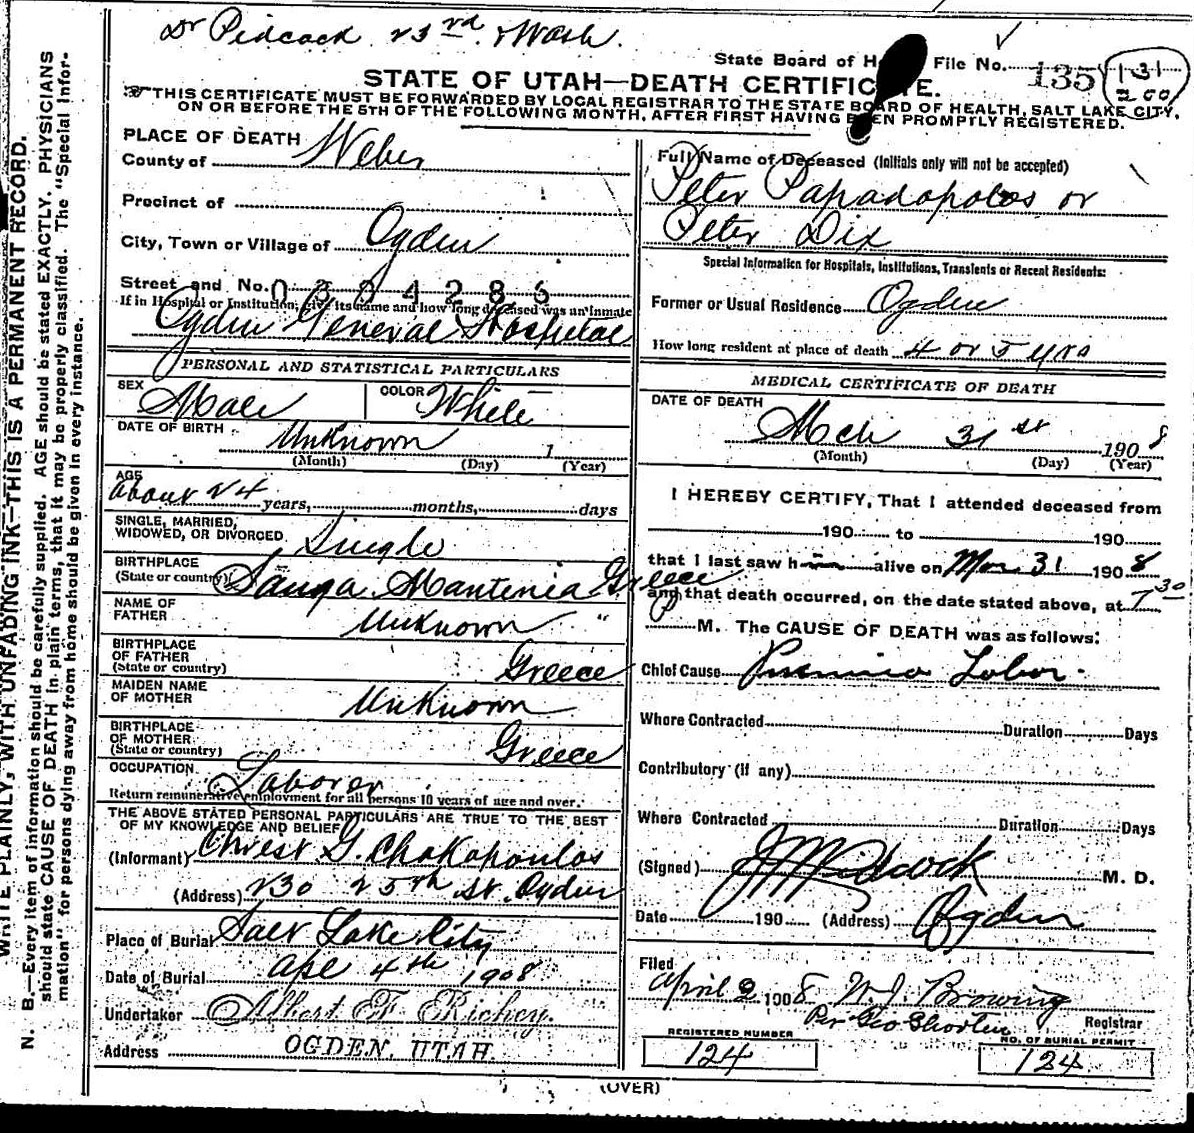 Dr Pidcock 23rd & Wash.
State Board of H File No. 135
131
200
STATE OF UTAH—DEATH CERTIFIC TE.
THIS CERTIFICATE MUST BE FORWARDED BY LOCAL REGISTRAR TO THE STATE BOARD OF HEALTH, SALT LAKE CITY,
ON OR BEFORE THE 5TH OF THE FOLLOWING MONTH, AFTER FIRST HAVING BEEN PROMPTLY REGISTERED.
WRITE PLAINLY, WITH UNFADING INK—THIS IS A PERMANENT RECORD.
N. B.—Every item of information should be carefully supplied. AGE should be stated EXACTLY. PHYSICIANS
should state CAUSE OF DEATH in plain terms, that it may be properly classified. The "Special Infor-
mation" for persons dying away from home should be given in every instance.
PLACE OF DEATH
County of Weber
Precinct of
City, Town or Village of Ogden
Street and No.
0304286
If in Hospital or Institution, give its name and how long deceased was an inmate
Ogden General Hospital
PERSONAL AND STATISTICAL PARTICULARS
SEX Male COLOR White
DATE OF BIRTH Unknown 1
(Month) (Day) (Year)
AGE about 24 years, months, days
SINGLE, MARRIED,
WIDOWED, OR DIVORCED Single
BIRTHPLACE
(State or country) Sanga Mantenia Greece
NAME OF
FATHER Unknown "
BIRTHPLACE
OF FATHER
(State or country) Greece
MAIDEN NAME
OF MOTHER Unknown
BIRTHPLACE
OF MOTHER
(State or country) Greece
OCCUPATION Laborer
Return remunerative employment for all persons 10 years of age and over.
THE ABOVE STATED PERSONAL PARTICULARS ARE TRUE TO THE BEST
OF MY KNOWLEDGE AND BELIEF
(Informant) Chrest G. Chokopoulos
(Address) 230 25th St. Ogden
Place of Burial Salt Lake City
Date of Burial Apl 4th 1908
Undertaker Albert F. Richey.
Address OGDEN, UTAH.
Full Name of Deceased (Initials only will not be accepted)
Peter Papadopolos or
Peter Dix
Special Information for Hospitals, Institutions, Transients or Recent Residents:
Former or Usual Residence Ogden
How long resident at place of death 4 or 5 yrs
MEDICAL CERTIFICATE OF DEATH
DATE OF DEATH
Mch 31st 1908
(Month) (Day) (Year)
I HEREBY CERTIFY, That I attended deceased from
190 to 190
that I last saw h alive on Mar 31 1908
and that death occurred, on the date stated above, at 7 30
P M. The CAUSE OF DEATH was as follows:
Chief Cause Pnumina Lobar.
Where Contracted Duration Days
Contributory (if any)
Where Contracted Duration Days
(Signed) J M Pidcock M. D.
Date 190 (Address) Ogden
Filed
April 2 1908 W. J. Browing
Per Geo Shorten Registrar
REGISTERED NUMBER 124
NO. OF BURIAL PERMIT 124
(OVER)